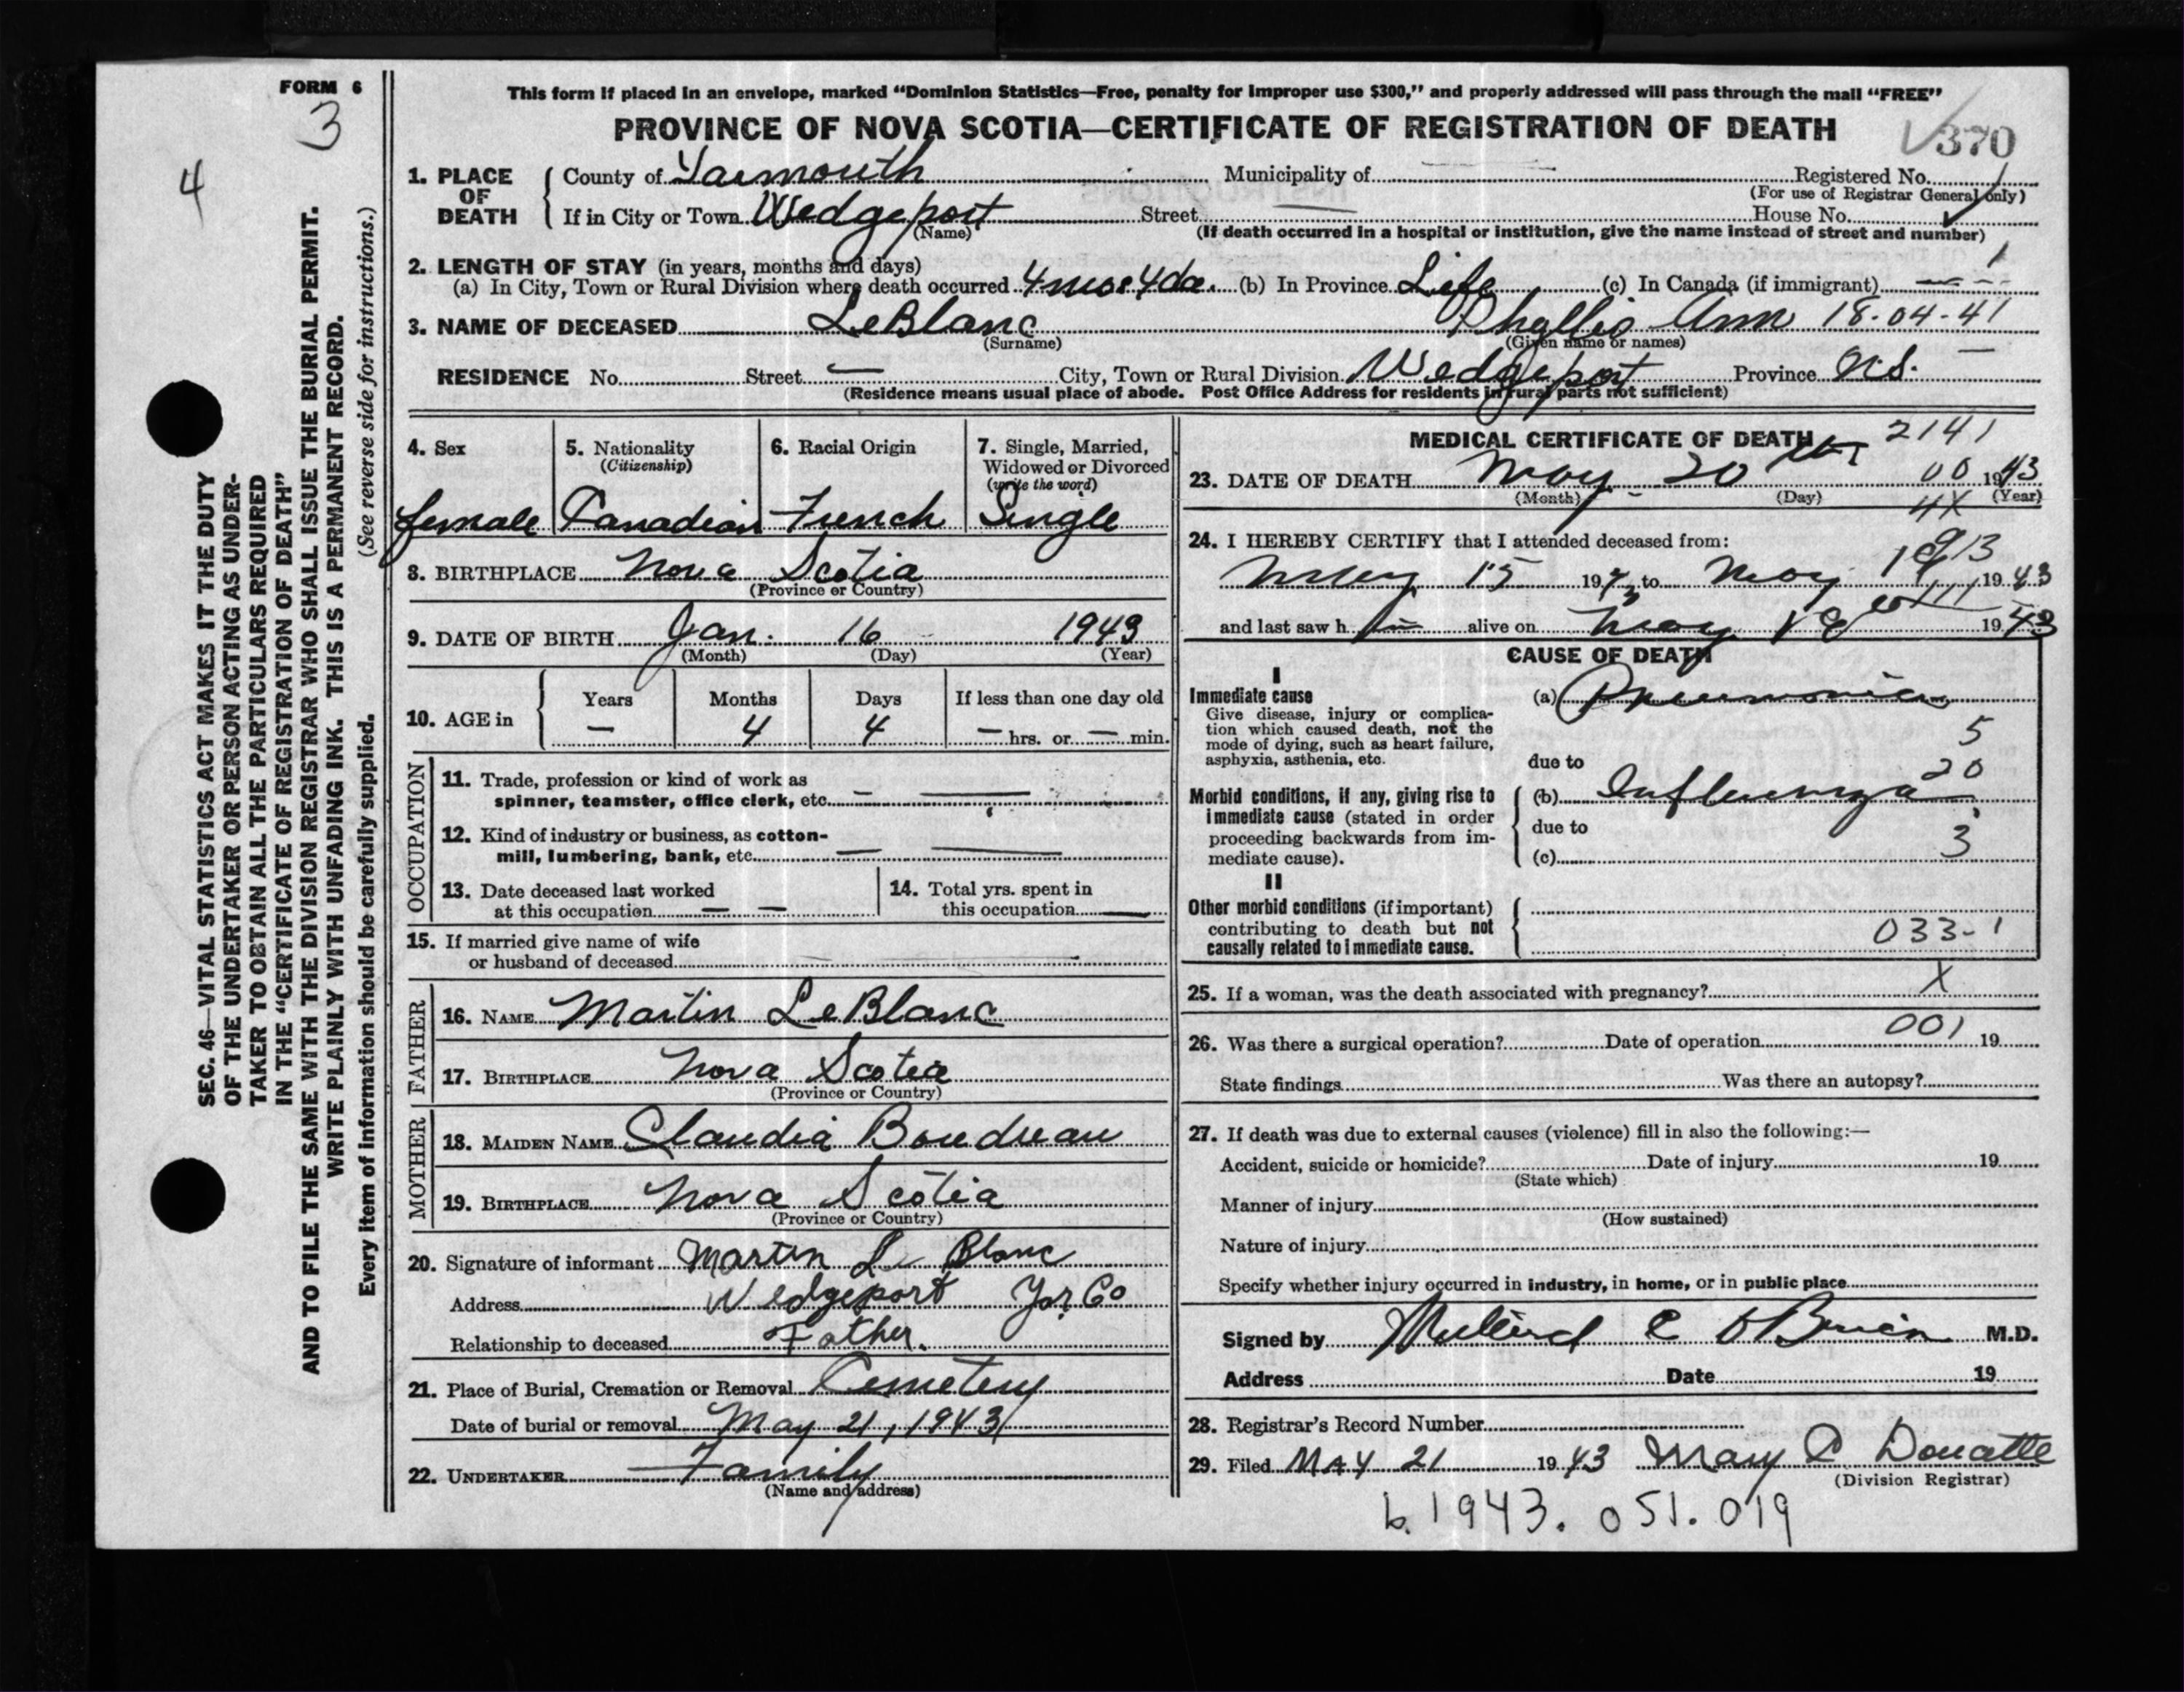 FORM 6
3
4
This form if placed in an envelope, marked "Dominion Statistics—Free, penalty for improper use $300," and properly addressed will pass through the mail "FREE"
PROVINCE OF NOVA SCOTIA—CERTIFICATE OF REGISTRATION OF DEATH
370
1. PLACE OF DEATH County of Yarmouth Municipality of Registered No.
(For use of Registrar General only)
If in City or Town Wedgeport Street House No.
(Name) (If death occurred in a hospital or institution, give the name instead of street and number)
2. LENGTH OF STAY (in years, months and days)
(a) In City, Town or Rural Division where death occurred 4 mos 4 da. (b) In Province Life (c) In Canada (if immigrant) 1
3. NAME OF DECEASED LeBlanc Phyllis Ann 18-04-41
(Surname) (Given name or names)
RESIDENCE No. Street — City, Town or Rural Division Wedgeport Province N.S. —
(Residence means usual place of abode. Post Office Address for residents in rural parts not sufficient)
4. Sex 5. Nationality (Citizenship) 6. Racial Origin 7. Single, Married, Widowed or Divorced (write the word)
female Canadian French Single
8. BIRTHPLACE Nova Scotia
(Province or Country)
9. DATE OF BIRTH Jan. 16 1943
(Month) (Day) (Year)
10. AGE in Years Months Days If less than one day old
— 4 4 — hrs. or — min.
OCCUPATION
11. Trade, profession or kind of work as
spinner, teamster, office clerk, etc. — —
12. Kind of industry or business, as cotton-
mill, lumbering, bank, etc. — —
13. Date deceased last worked
at this occupation — —
14. Total yrs. spent in
this occupation —
15. If married give name of wife
or husband of deceased
FATHER
16. NAME Martin LeBlanc
17. BIRTHPLACE Nova Scotia
(Province or Country)
MOTHER
18. MAIDEN NAME Claudia Boudreau
19. BIRTHPLACE Nova Scotia
(Province or Country)
20. Signature of informant Martin Le Blanc
Address Wedgeport Yar Co
Relationship to deceased Father.
21. Place of Burial, Cremation or Removal Cemetery
Date of burial or removal May 21, 1943
22. UNDERTAKER Family
(Name and address)
MEDICAL CERTIFICATE OF DEATH
2141
23. DATE OF DEATH May 20 00 1943
(Month) (Day) (Year)
4X
24. I HEREBY CERTIFY that I attended deceased from:
May 15 1943 to May 19 1943
and last saw h alive on May 19 1943
CAUSE OF DEATH
I
Immediate cause (a) Pneumonia
Give disease, injury or complica-
tion which caused death, not the
mode of dying, such as heart failure,
asphyxia, asthenia, etc.
5
due to
20
Morbid conditions, if any, giving rise to (b) Influenza
immediate cause (stated in order due to
proceeding backwards from im-
mediate cause). (c) 3
II
Other morbid conditions (if important)
contributing to death but not
causally related to immediate cause. 033-1
25. If a woman, was the death associated with pregnancy? X
001
26. Was there a surgical operation? Date of operation 19
State findings Was there an autopsy?
27. If death was due to external causes (violence) fill in also the following:—
Accident, suicide or homicide? Date of injury 19
(State which)
Manner of injury
(How sustained)
Nature of injury
Specify whether injury occurred in industry, in home, or in public place
Signed by C O'Brien M.D.
Address Date 19
28. Registrar's Record Number
29. Filed MAY 21 1943 Mary Doucette
(Division Registrar)
b. 1943. 051. 019
SEC. 46—VITAL STATISTICS ACT MAKES IT THE DUTY
OF THE UNDERTAKER OR PERSON ACTING AS UNDER-
TAKER TO OBTAIN ALL THE PARTICULARS REQUIRED
IN THE "CERTIFICATE OF REGISTRATION OF DEATH"
AND TO FILE THE SAME WITH THE DIVISION REGISTRAR WHO SHALL ISSUE THE BURIAL PERMIT.
WRITE PLAINLY WITH UNFADING INK. THIS IS A PERMANENT RECORD.
Every item of information should be carefully supplied. (See reverse side for instructions.)